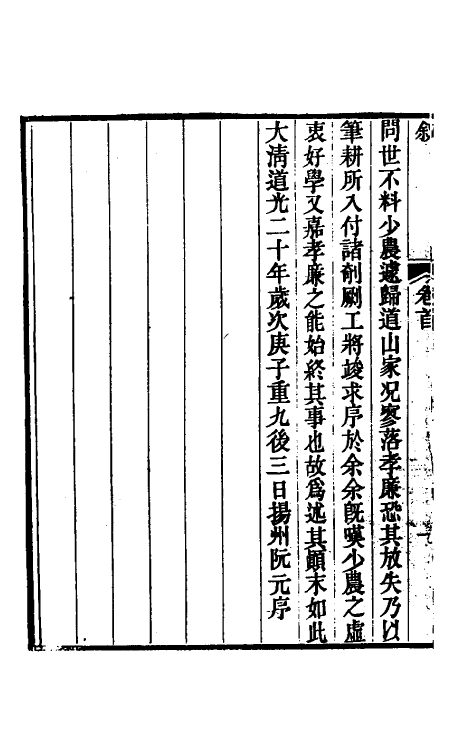 敘 卷首 一
問世不料少農遽歸道山家况寥落孝廉恐其放失乃以
筆耕所入付諸剞劂工將竣求序於余余旣嘆少農之虛
衷好學又嘉孝廉之能始終其事也故爲述其顚末如此
大淸道光二十年歲次庚子重九後三日揚州阮元序